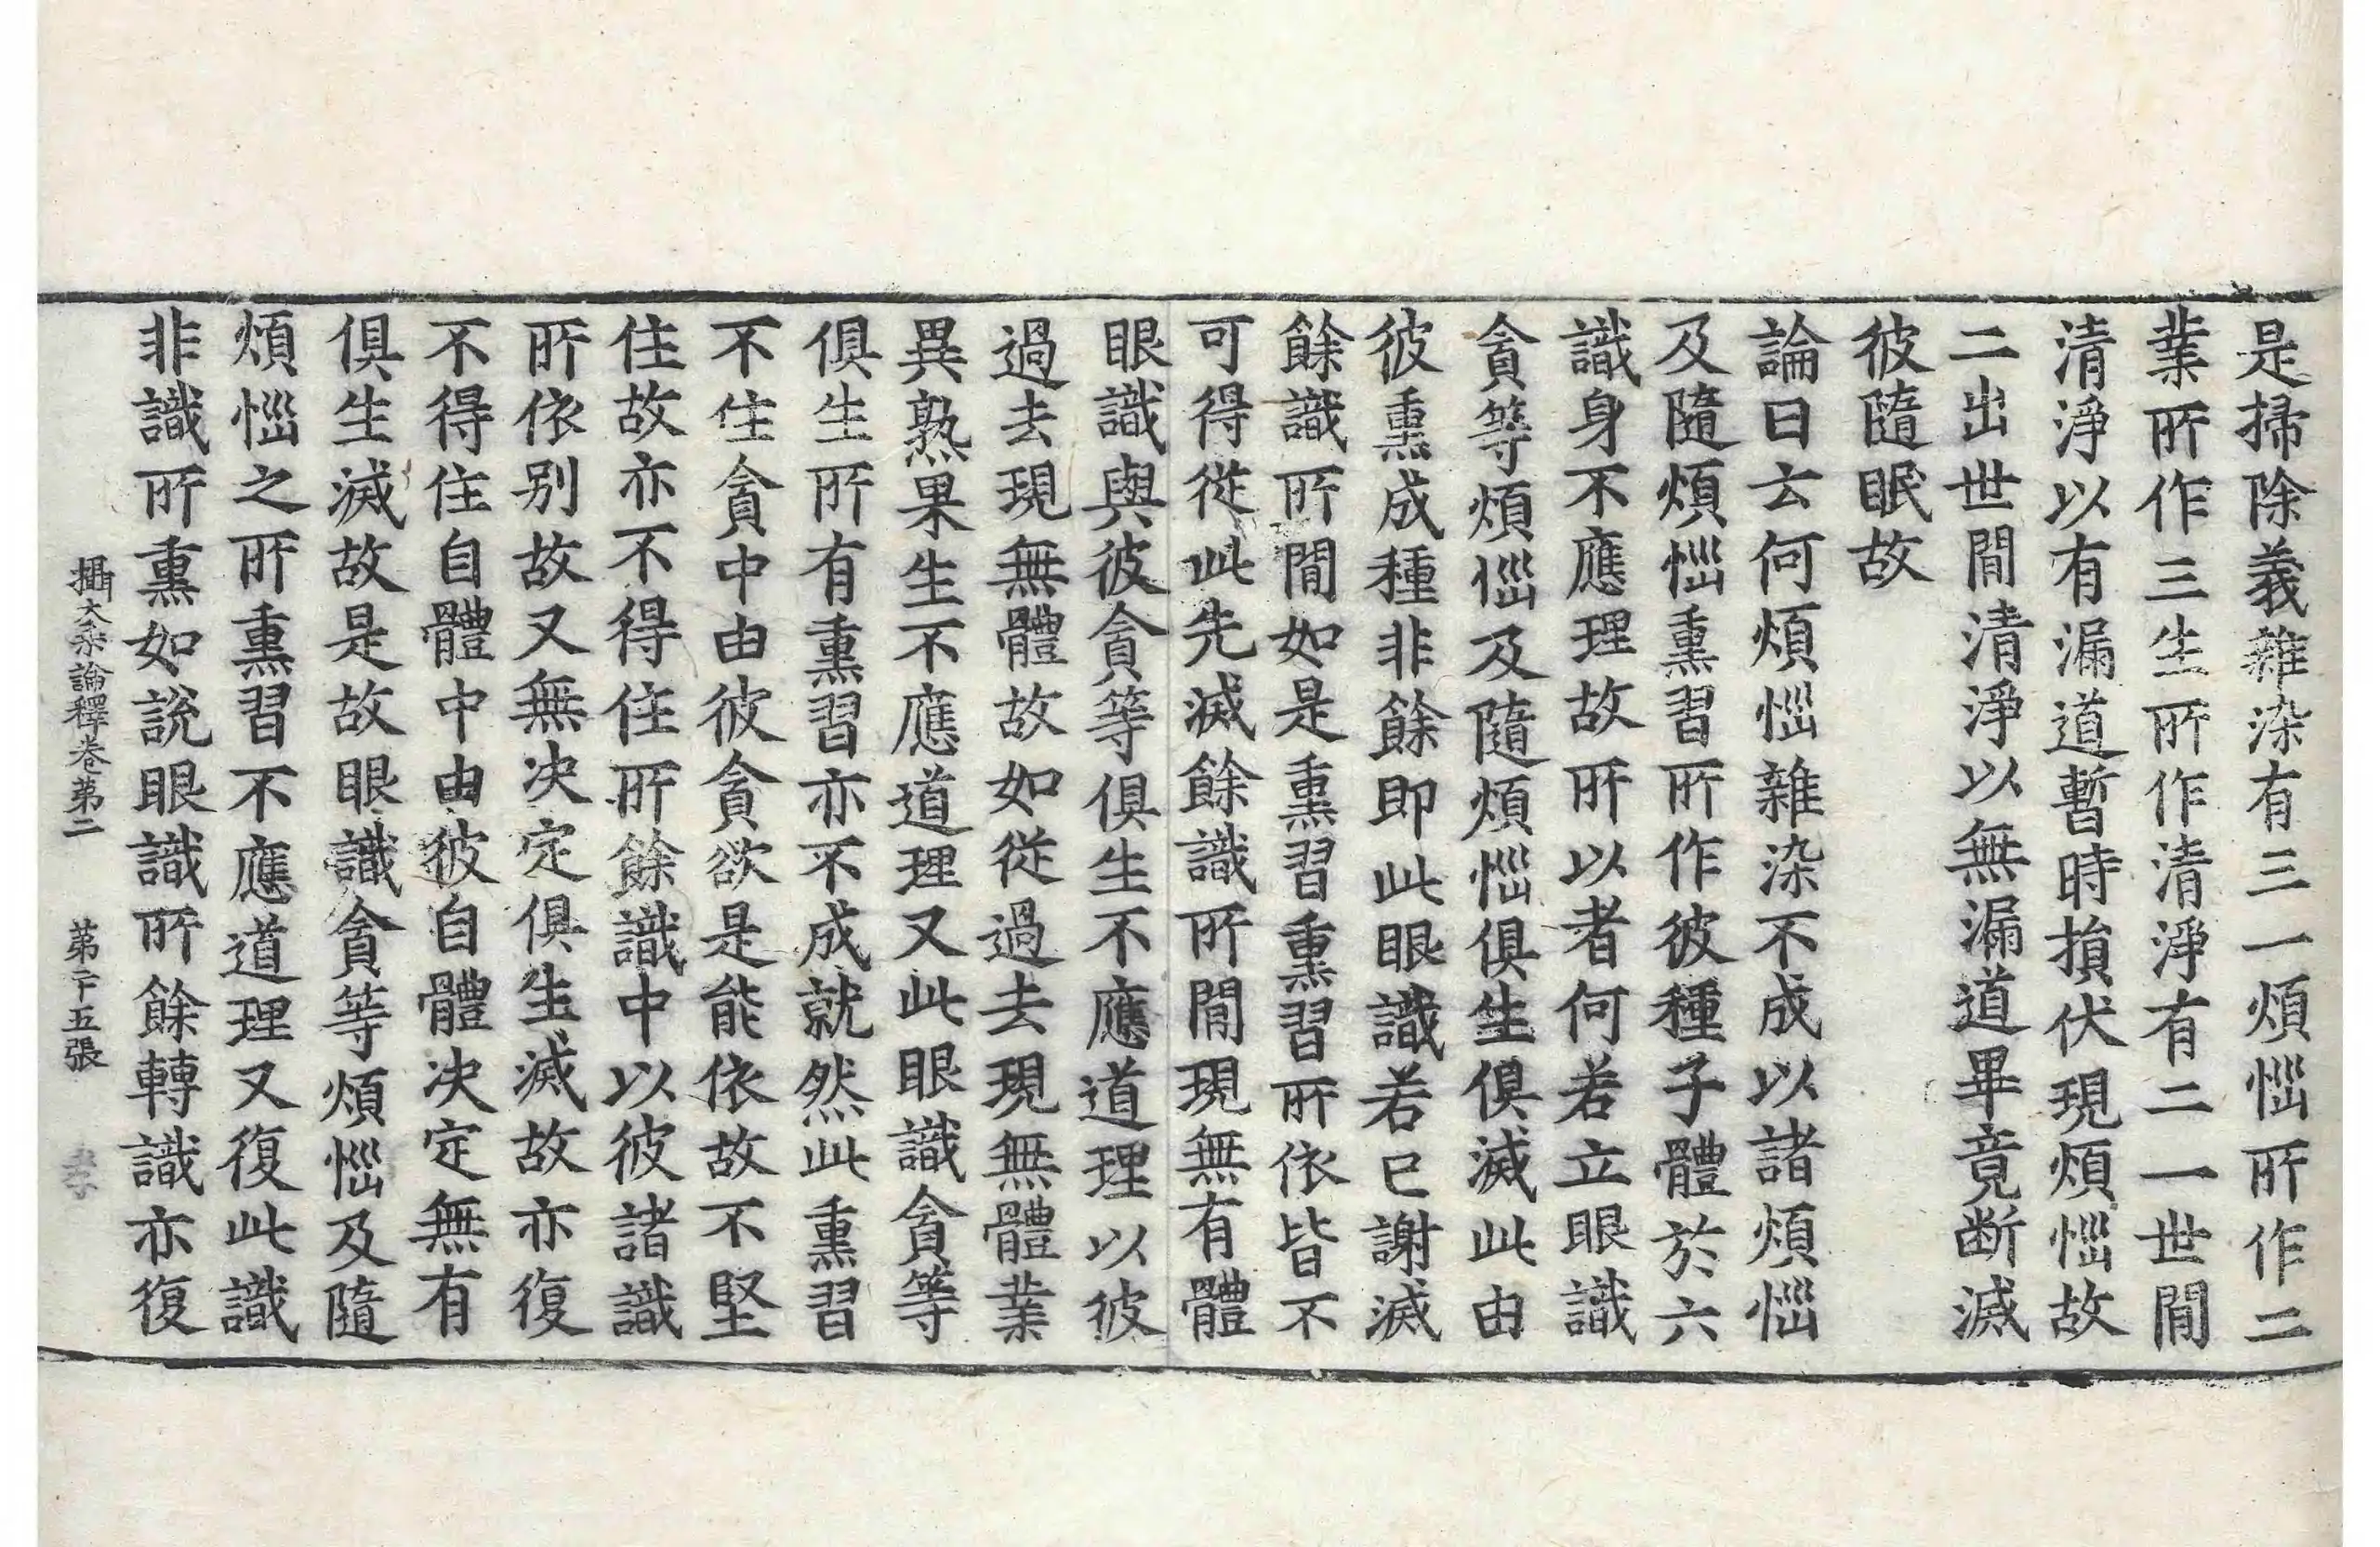 是掃除義雜染有三一煩惱所作二
業所作三生所作清淨有二一世閒
清淨以有漏道暫時損伏現煩惱故
二出世閒清淨以無漏道畢竟断滅
彼隨眠故
論曰云何煩惱雜染不成以諸煩惱
及隨煩惱熏習所作彼種子體於六
識身不應理故所以者何若立眼識
貪等煩惱及隨煩惱俱生俱滅此由
彼熏成種非餘即此眼識若已謝滅
餘識所閒如是熏習熏習所依皆不
可得從此先滅餘識所閒現無有體
眼識與彼貪等俱生不應道理以彼
過去現無體故如從過去現無體業
異熟果生不應道理又此眼識貪等
俱生所有熏習亦不成就然此熏習
不住貪中由彼貪欲是能依故不堅
住故亦不得住所餘識中以彼諸識
所依别故又無决定俱生滅故亦復
不得住自體中由彼自體决定無有
俱生滅故是故眼識貪等煩惱及隨
煩惱之所熏習不應道理又復此識
非識所熏如說眼識所餘轉識亦復
攝大乘論釋卷第二 第二十五張 孝